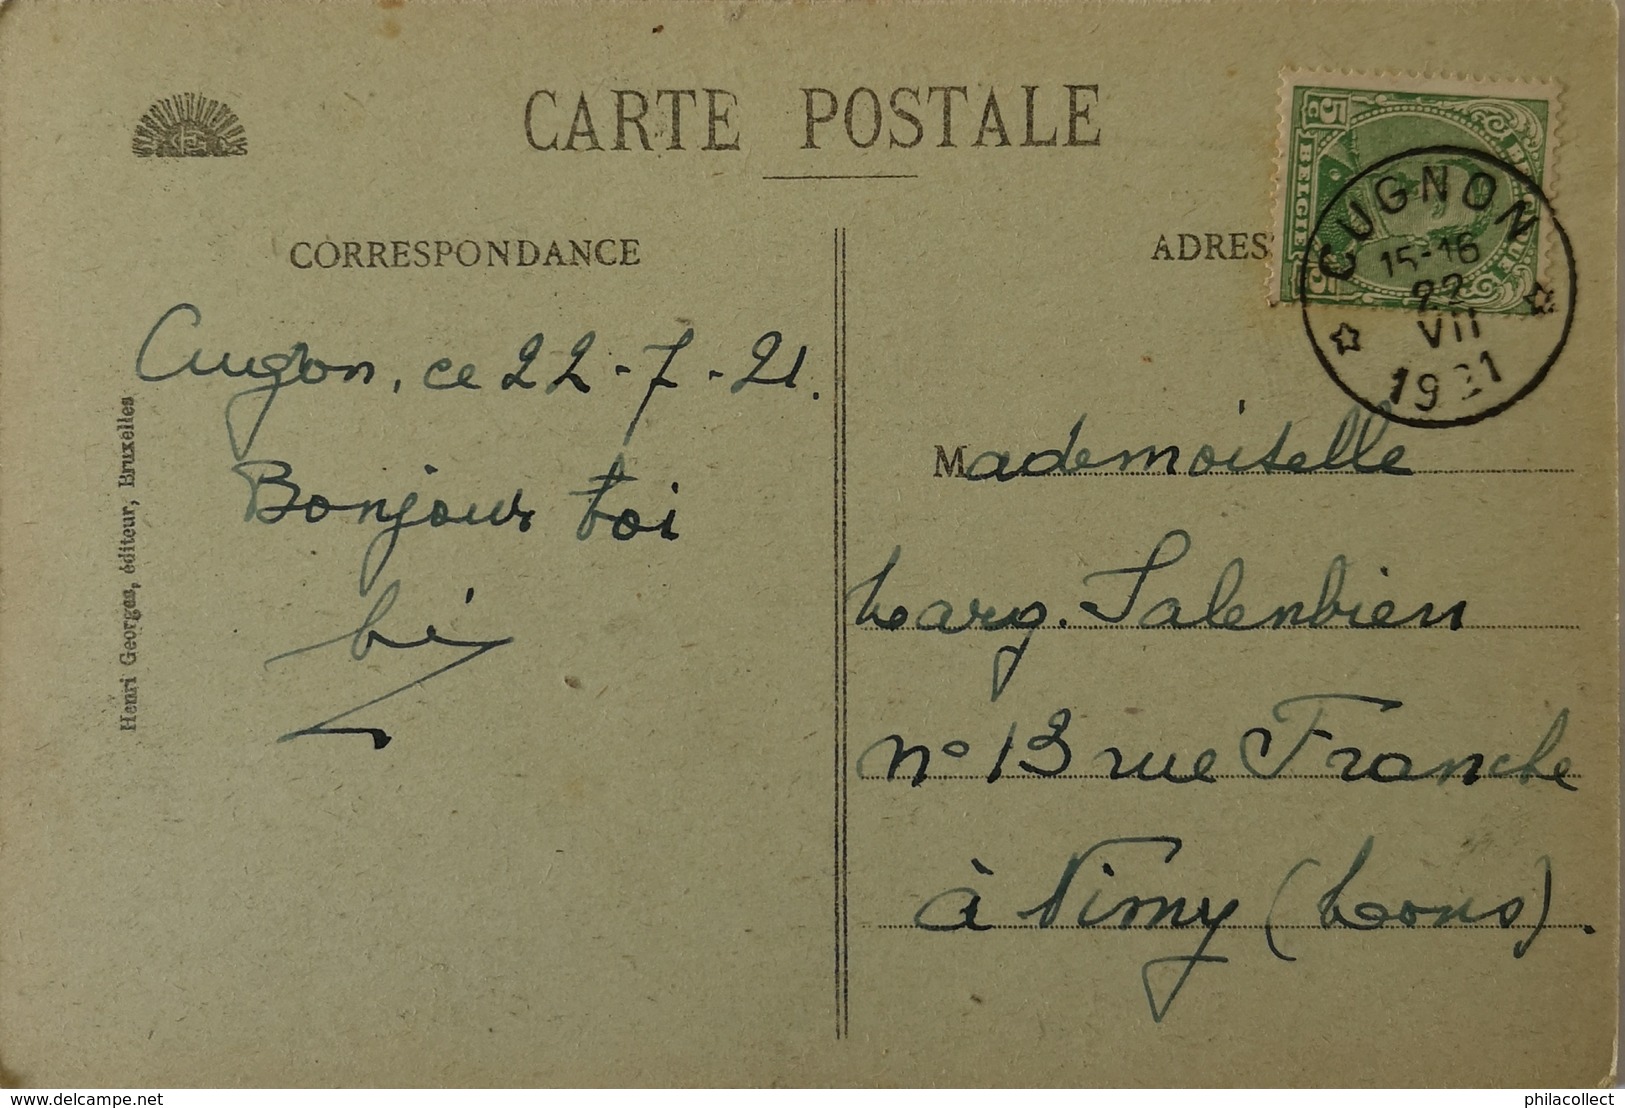 CARTE POSTALE
CORRESPONDANCE
ADRES
5c
BELGIË
BELGIQUE
5c
CUGNON
15-16
22
VII
1921
Cugnon, ce 22-7-21.
Bonjour toi
bé
Henri Georges, éditeur, Bruxelles
Mademoiselle
Marg. Salenbien
n° 13 rue Franche
à Nimy (Mons).
Website: delcampe.net
philacollect